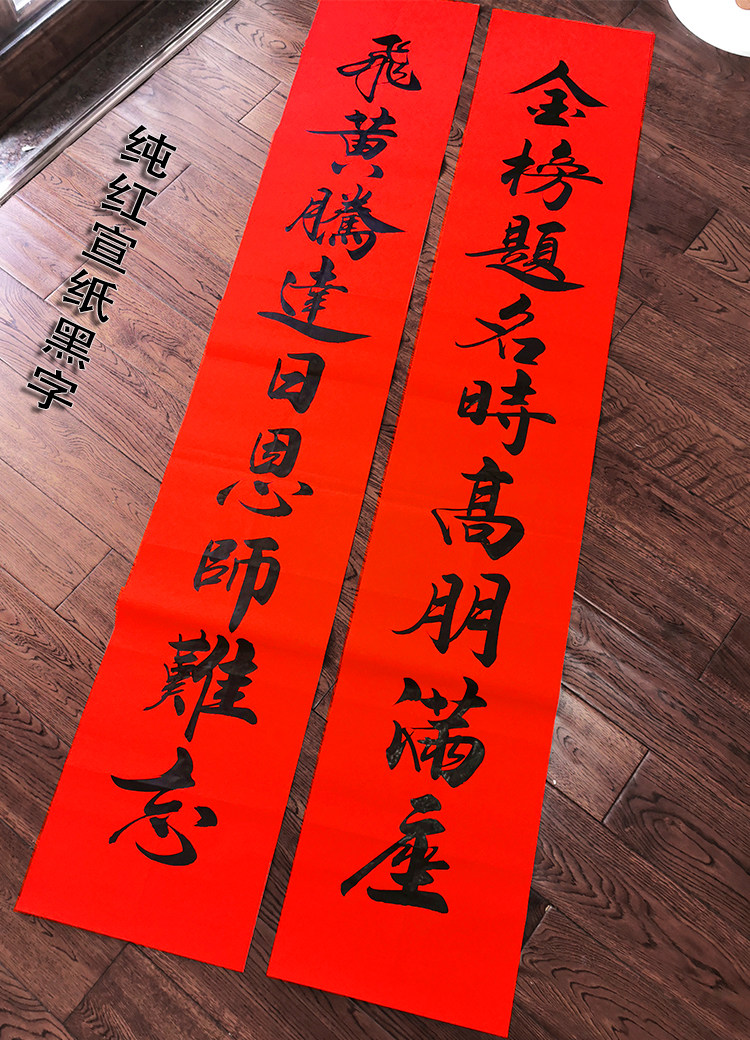 金榜題名時高朋满座
飛黄騰達日恩師難忘
纯红宣纸黑字